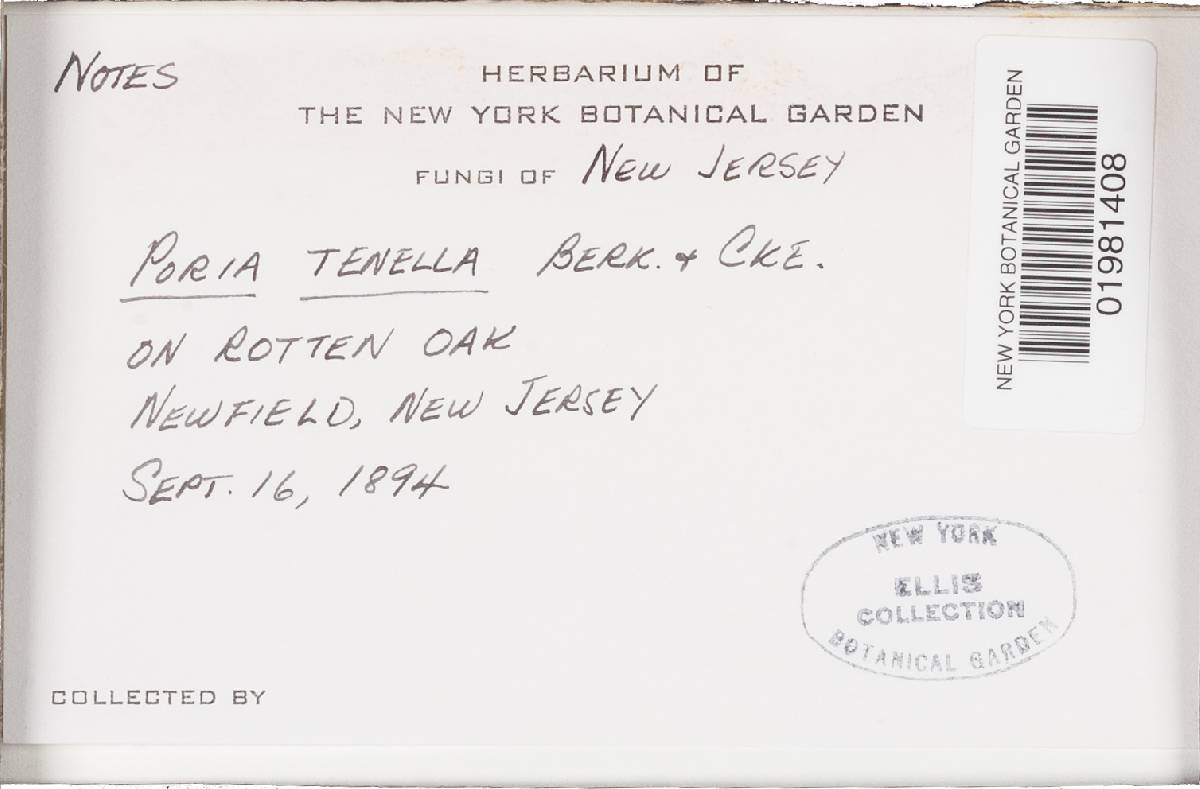 Notes
HERBARIUM OF
THE NEW YORK BOTANICAL GARDEN
FUNGI OF New Jersey
Poria tenella Berk. & Cke.
on rotten oak
Newfield, New Jersey
Sept. 16, 1894
COLLECTED BY
NEW YORK
ELLIS
COLLECTION
BOTANICAL GARDEN
NEW YORK BOTANICAL GARDEN
01981408